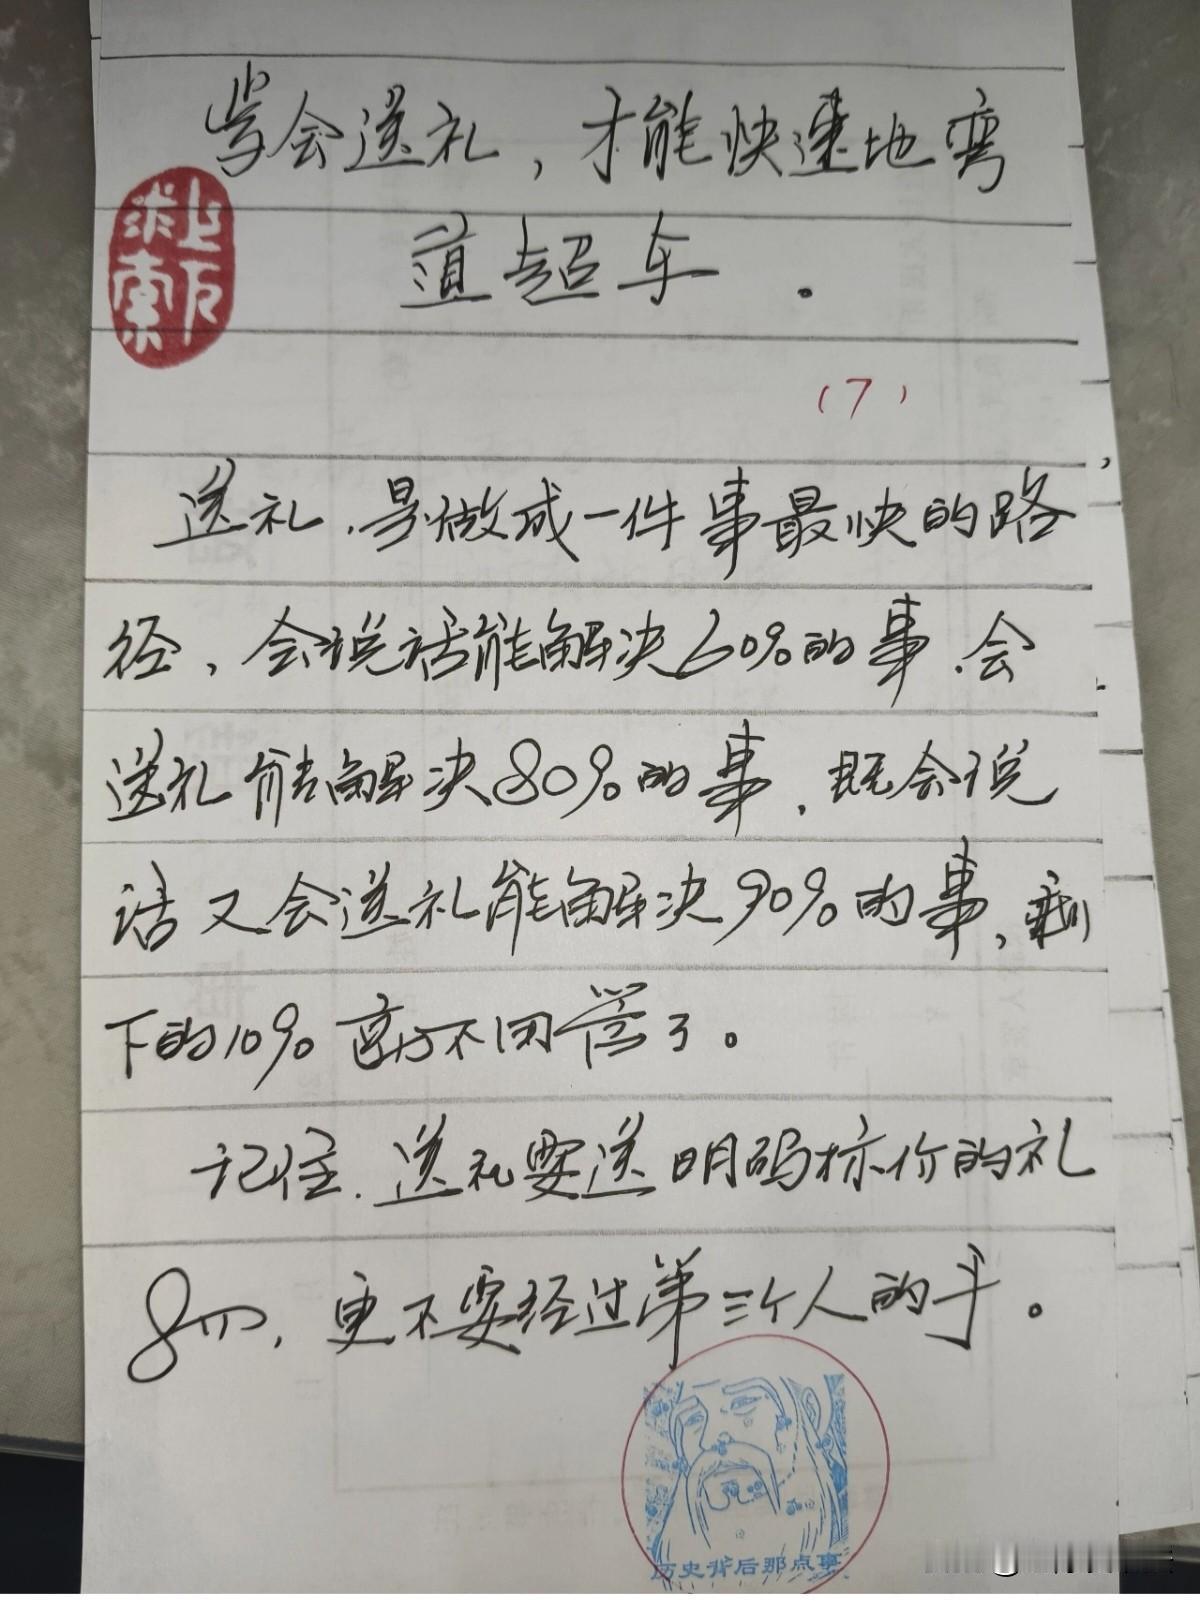 学会送礼，才能快速地弯
道超车。
（7）
送礼，是做成一件事最快的路
径，会说话能解决60%的事，会
送礼能解决80%的事，既会说
话又会送礼能解决90%的事，剩
下的10%直接不用管了。
记住，送礼要送明码标价的礼
品，更不要经过第三个人的手。
历史背后那点事